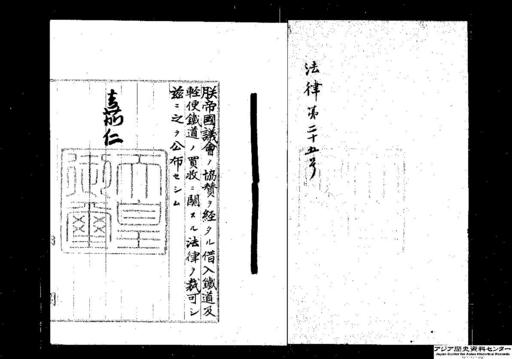 法律第二十五号
朕帝國議會ノ協贊ヲ經タル借入鐵道及
軽便鐵道ノ買收ニ關スル法律ヲ裁可シ
茲ニ之ヲ公布セシム
嘉仁
天皇
御璽
アジア歴史資料センター
Japan Center for Asian Historical Records